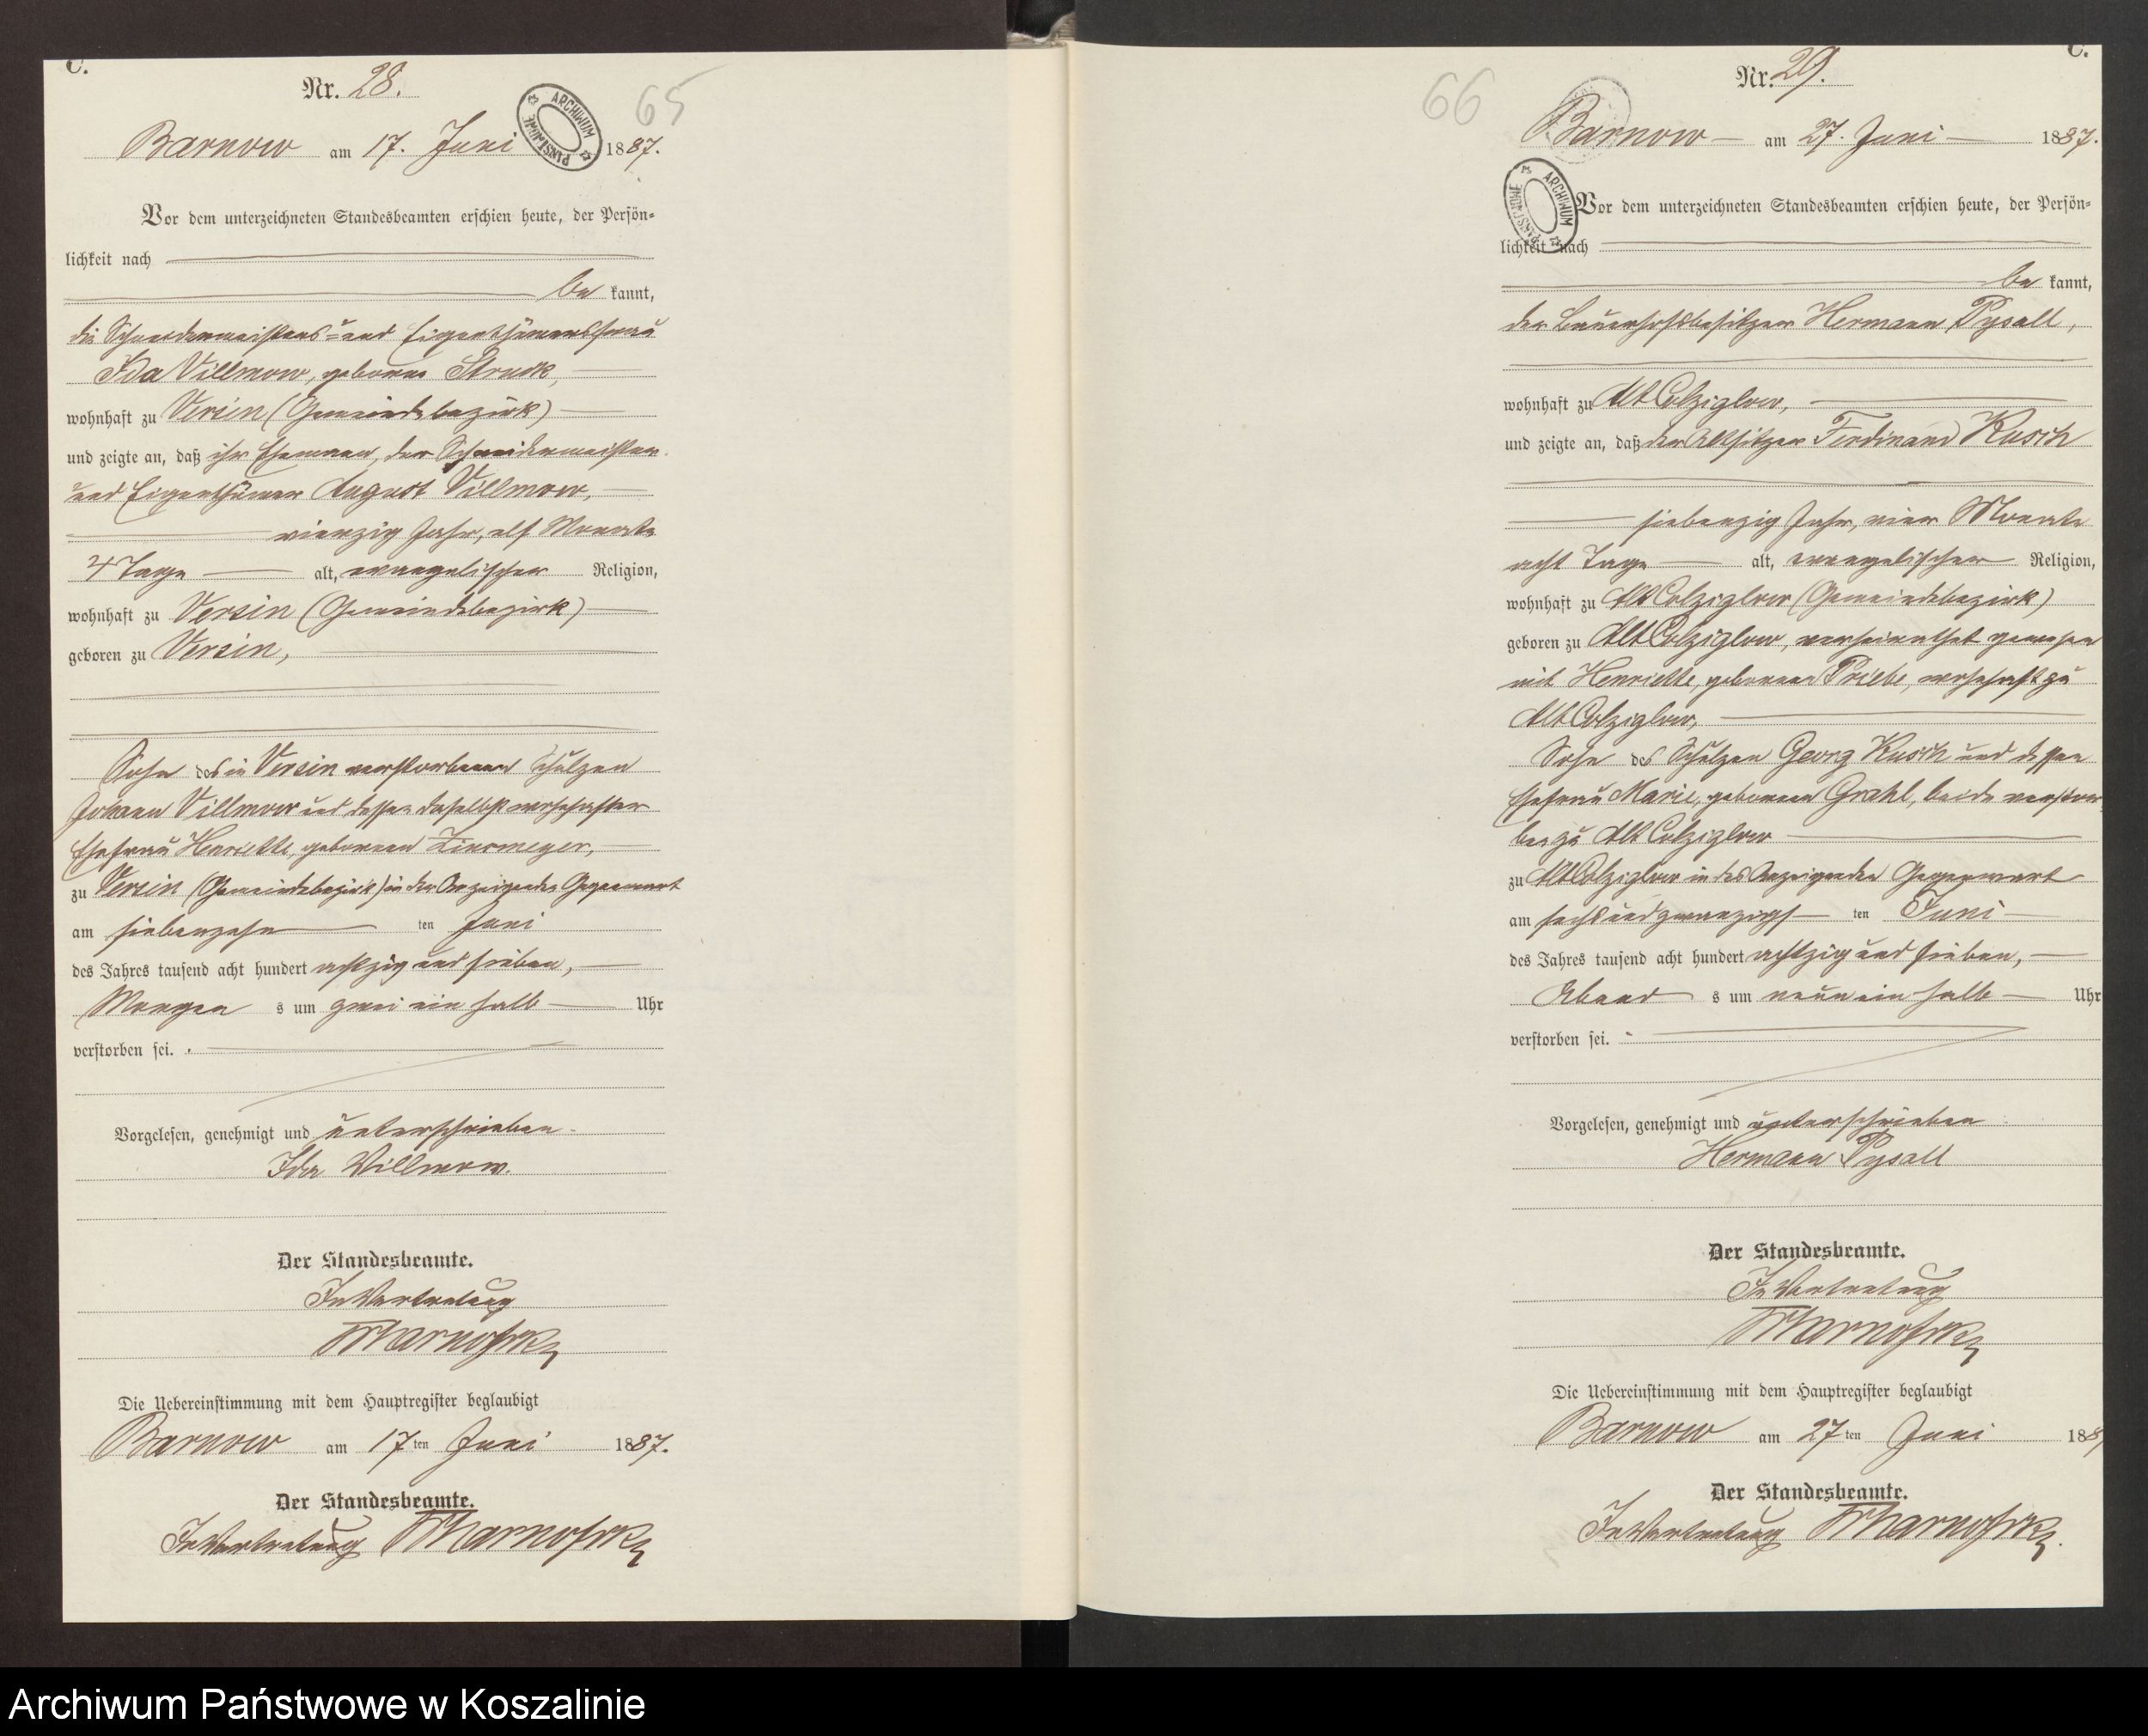 C.
Nr. 28.
65
ARCHIWUM PAŃSTWOWE
Barnow am 17. Juni 1887.
Vor dem unterzeichneten Standesbeamten erschien heute, der Persön-
lichkeit nach
be kannt,
die Schneidermeisters- und Eigenthümersfrau
Ida Villmow, geborne Struck,
wohnhaft zu Versin (Gemeindebezirk)
und zeigte an, daß ihr Ehemann, der Schneidermeister
und Eigenthümer August Villmow,
vierzig Jahr, elf Monate
4 Tage alt, evangelischer Religion,
wohnhaft zu Versin (Gemeindebezirk)
geboren zu Versin,
Sohn des in Versin verstorbenen Schulzen
Johann Villmow und dessen daselbst wohnhafter
Ehefrau Henriette, geborenen
zu Versin (Gemeindebezirk) in der Anzeigenden Gegenwart
am siebenzehn ten Juni
des Jahres tausend acht hundert achtzig und sieben,
Morgen s um zwei ein halb Uhr
verstorben sei.
Vorgelesen, genehmigt und unterschrieben
Ida Villmow.
Der Standesbeamte.
In Vertretung
Die Uebereinstimmung mit dem Hauptregister beglaubigt
Barnow am 17 ten Juni 1887.
Der Standesbeamte.
In Vertretung
C.
Nr. 29.
66
Barnow am 27. Juni 1887.
ARCHIWUM PAŃSTWOWE
Vor dem unterzeichneten Standesbeamten erschien heute, der Persön-
lichkeit nach
be kannt,
der Bauerhofsbesitzer Hermann Pysall,
wohnhaft zu Alt Colziglow,
und zeigte an, daß der Altsitzer Ferdinand Kusch
siebenzig Jahr, vier Monate
acht Tage alt, evangelischer Religion,
wohnhaft zu Alt Colziglow (Gemeindebezirk)
geboren zu Alt Colziglow, verheirathet gewesen
mit Henriette, geborenen Priebe, wohnhaft zu
Alt Colziglow,
Sohn des Schulzen Georg Kusch und dessen
Ehefrau Marie, geborenen Grahl, beide verstor
ben zu Alt Colziglow
zu Alt Colziglow in des Anzeigenden Gegenwart
am sechs und zwanzigs ten Juni
des Jahres tausend acht hundert achtzig und sieben,
Abend s um neun ein halb Uhr
verstorben sei.
Vorgelesen, genehmigt und unterschrieben
Hermann Pysall
Der Standesbeamte.
In Vertretung
Die Uebereinstimmung mit dem Hauptregister beglaubigt
Barnow am 27 ten Juni 188
Der Standesbeamte.
In Vertretung
Archiwum Państwowe w Koszalinie